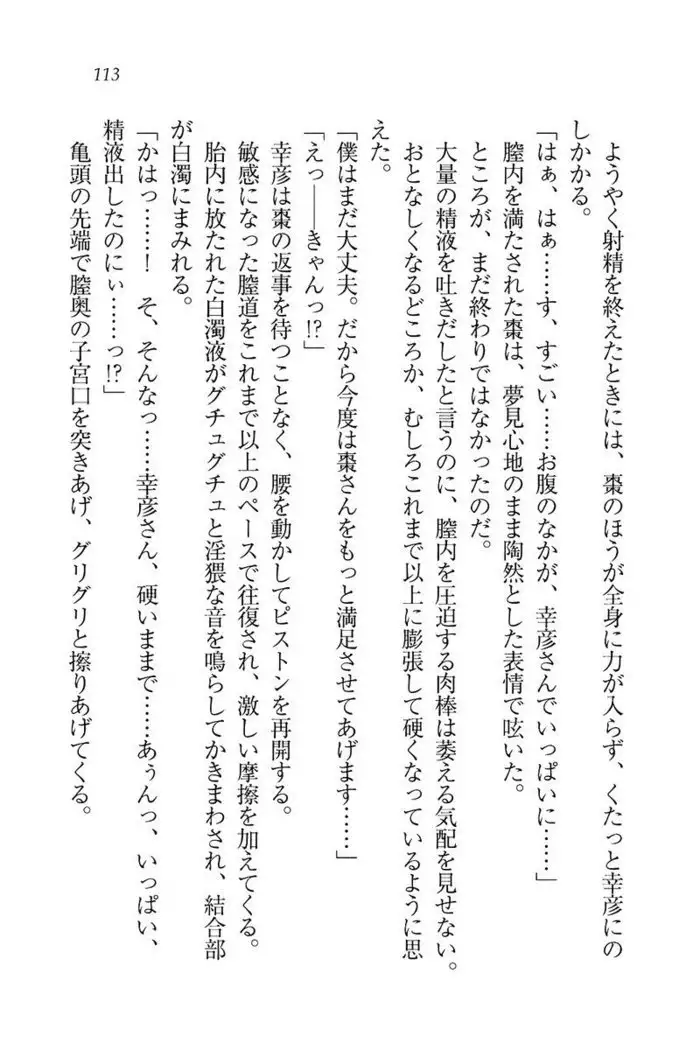 113
ようやく射精を終えたときには、棗のほうが全身に力が入らず、くたっと幸彦にの
しかかる。
「はぁ、はぁ……す、すごい……お腹のなかが、幸彦さんでいっぱいに……」
膣内を満たされた棗は、夢見心地のまま陶然とした表情で呟いた。
ところが、まだ終わりではなかったのだ。
大量の精液を吐きだしたと言うのに、膣内を圧迫する肉棒は萎える気配を見せない。
おとなしくなるどころか、むしろこれまで以上に膨張して硬くなっているように思
えた。
「僕はまだ大丈夫。だから今度は棗さんをもっと満足させてあげます……」
「えっ――きゃんっ!?」
幸彦は棗の返事を待つことなく、腰を動かしてピストンを再開する。
敏感になった膣道をこれまで以上のペースで往復され、激しい摩擦を加えてくる。
胎内に放たれた白濁液がグチュグチュと淫猥な音を鳴らしてかきまわされ、結合部
が白濁にまみれる。
「かはっ……! そ、そんなっ……幸彦さん、硬いままで……あぅんっ、いっぱい、
精液出したのにぃ……っ!?」
亀頭の先端で膣奥の子宮口を突きあげ、グリグリと擦りあげてくる。